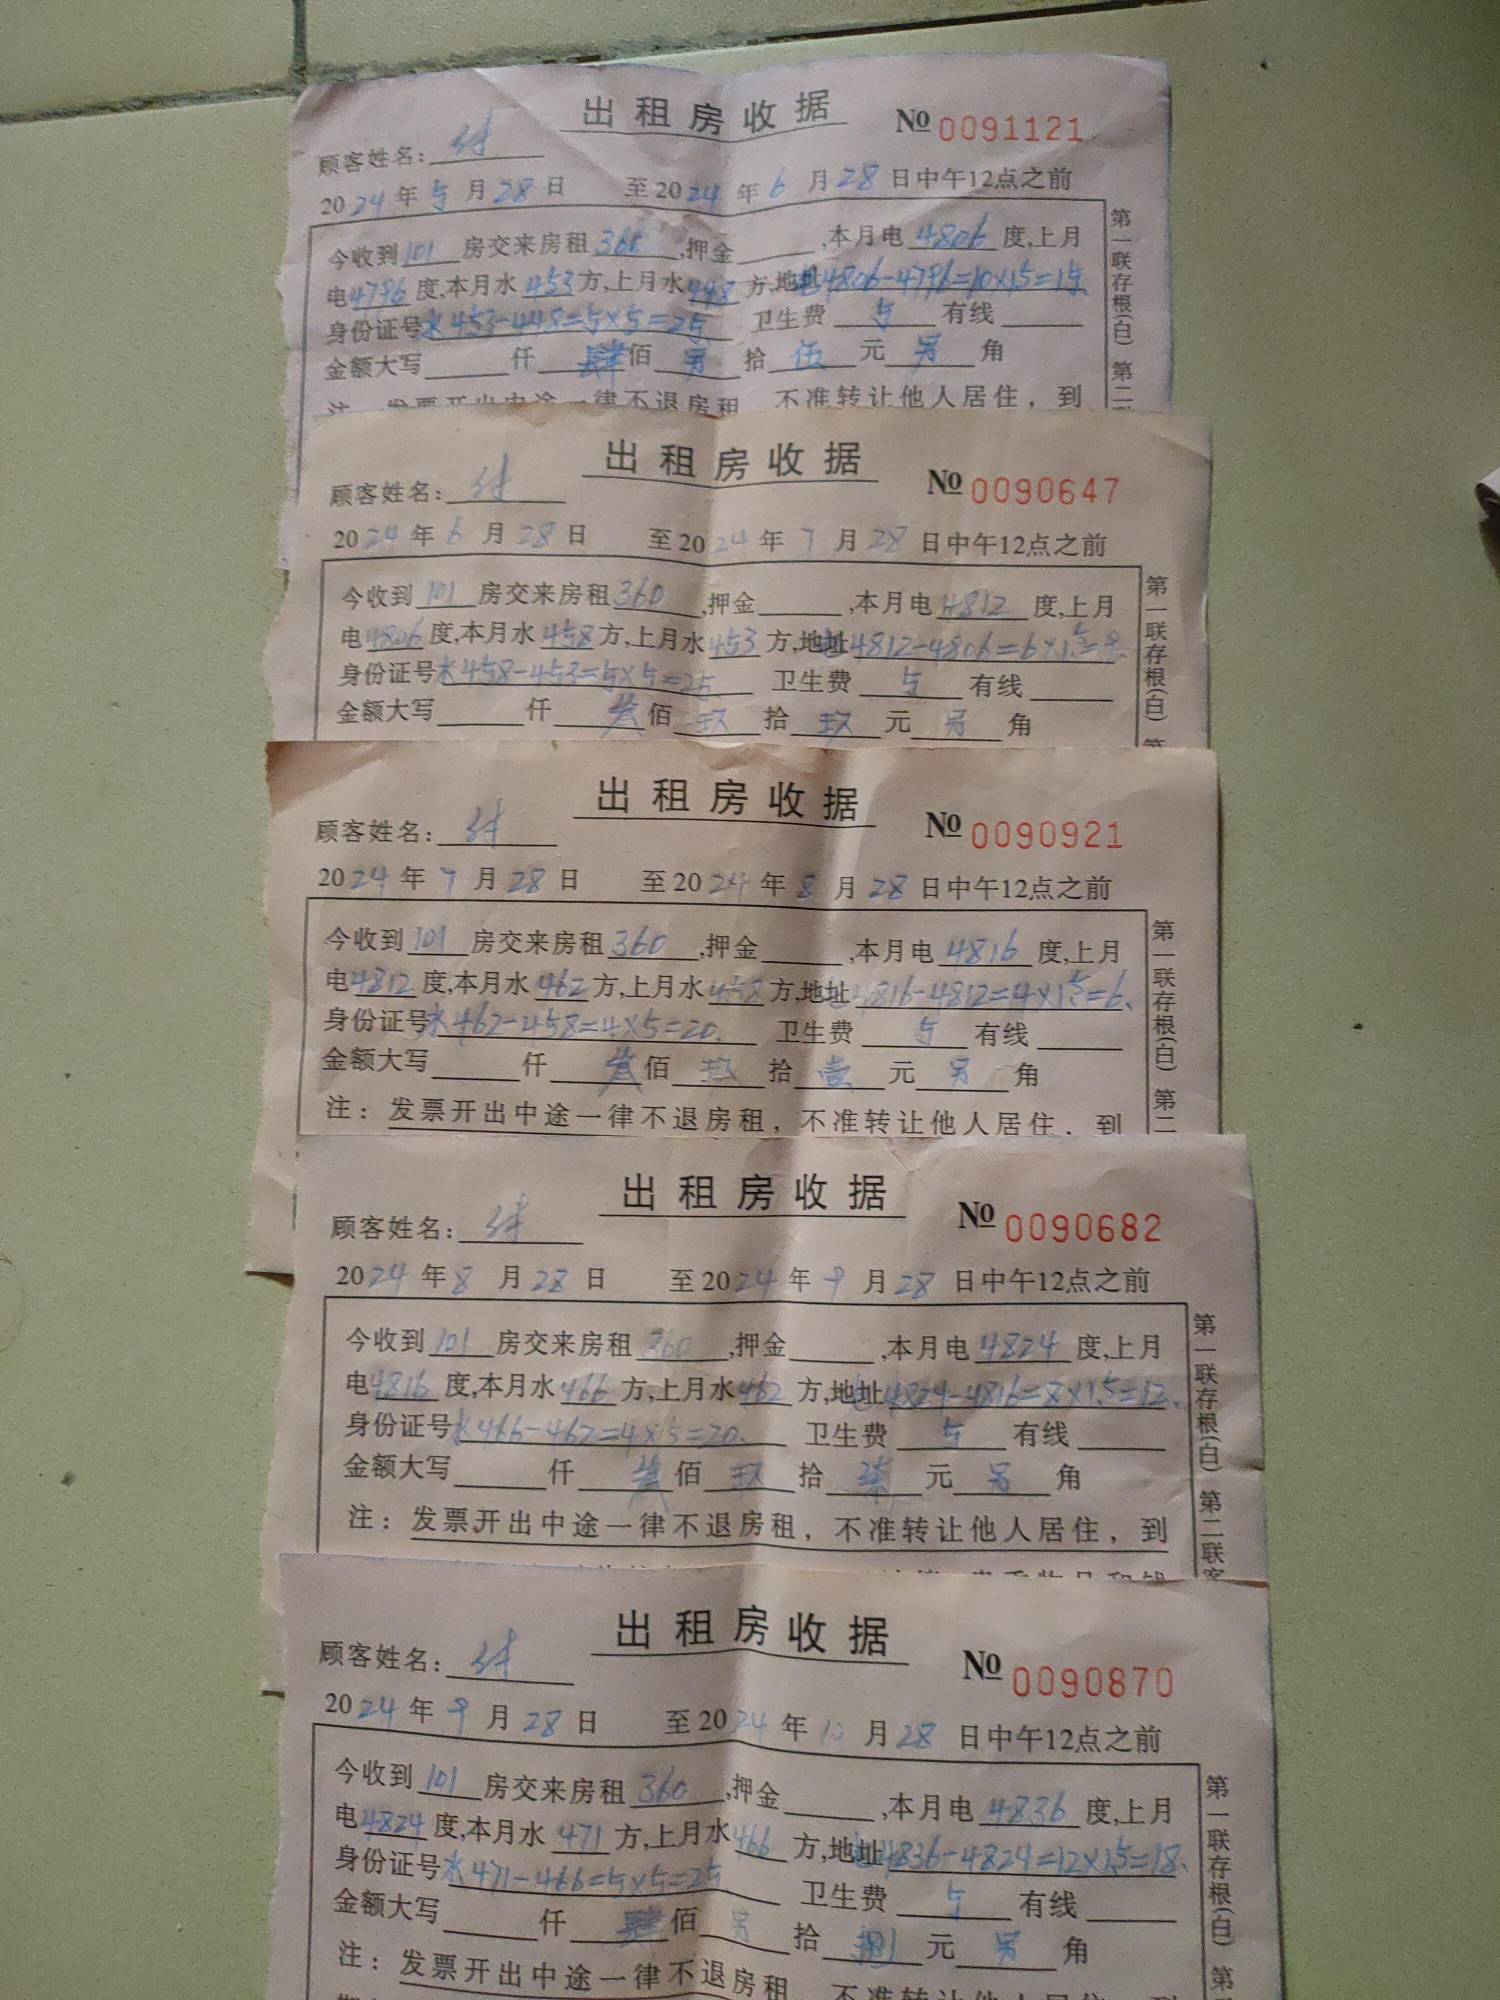 出租房收据 № 0091121
顾客姓名：付
2024年5月28日 至2024年6月28日中午12点之前
今收到101房交来房租360,押金 ,本月电4806度,上月
电4796度,本月水453方,上月水448方,地址电4806-4796=10×1.5=15.
身份证号水453-448=5×5=25. 卫生费5有线
金额大写 仟肆佰另拾伍元另角
注：发票开出中途一律不退房租，不准转让他人居住，到
第一联存根(白) 第二
出租房收据 № 0090647
顾客姓名：付
2024年6月28日 至2024年7月28日中午12点之前
今收到101房交来房租360,押金 ,本月电4812度,上月
电4806度,本月水458方,上月水453方,地址电4812-4806=6×1.5=9.
身份证号水458-453=5×5=25. 卫生费5有线
金额大写 仟叁佰玖拾玖元另角
第一联存根(白) 第
出租房收据 № 0090921
顾客姓名：付
2024年7月28日 至2024年8月28日中午12点之前
今收到101房交来房租360,押金 ,本月电4816度,上月
电4812度,本月水462方,上月水458方,地址电4816-4812=4×1.5=6.
身份证号水462-458=4×5=20. 卫生费5有线
金额大写 仟叁佰玖拾壹元另角
注：发票开出中途一律不退房租，不准转让他人居住，到
第一联存根(白) 第二
出租房收据 № 0090682
顾客姓名：付
2024年8月28日 至2024年9月28日中午12点之前
今收到101房交来房租360,押金 ,本月电4824度,上月
电4816度,本月水466方,上月水462方,地址电4824-4816=8×1.5=12.
身份证号水466-462=4×5=20. 卫生费5有线
金额大写 仟叁佰玖拾柒元另角
注：发票开出中途一律不退房租，不准转让他人居住，到
第一联存根(白) 第二联客
出租房收据 № 0090870
顾客姓名：付
2024年9月28日 至2024年10月28日中午12点之前
今收到101房交来房租360,押金 ,本月电4836度,上月
电4824度,本月水471方,上月水466方,地址电4836-4824=12×1.5=18.
身份证号水471-466=5×5=25 卫生费5有线
金额大写 仟肆佰另拾捌元另角
注：发票开出中途一律不退房租，不准转让他人居住，到
第一联存根(白) 第